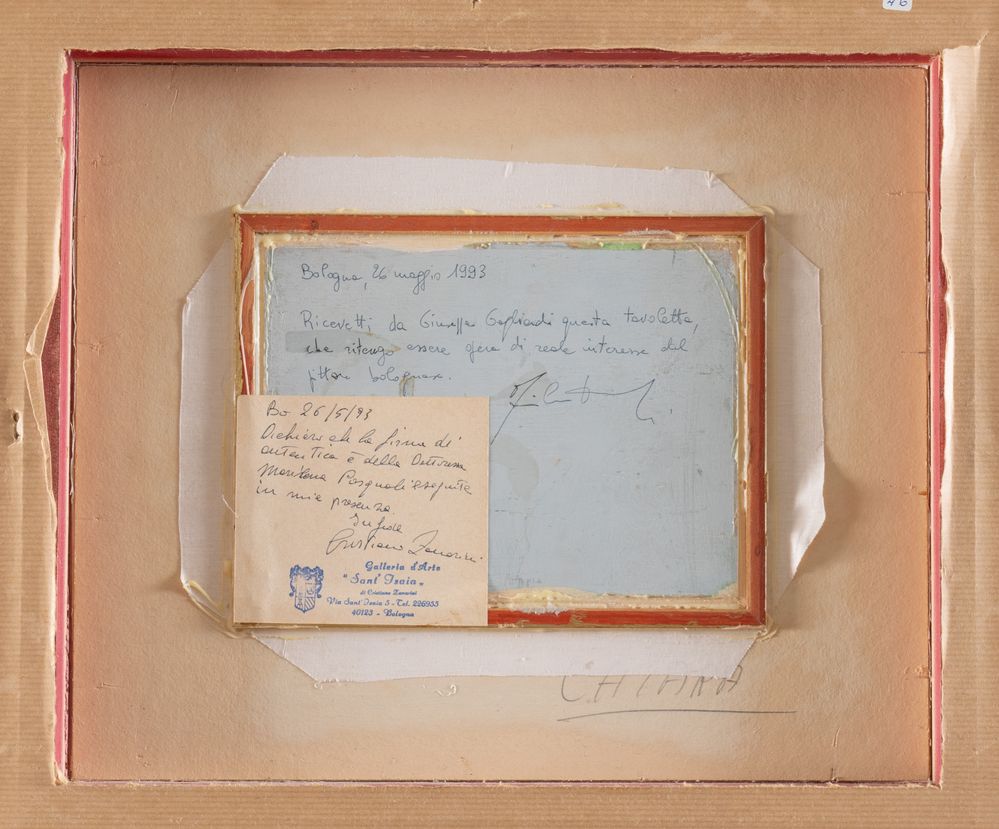 46
Bologna, 26 maggio 1993
Ricevetti da Giuseppe Gagliardi questa tavoletta,
che ritengo essere opera di reale interesse del
pittore bolognese.
Bo 26/5/93
Dichiaro che la firma di
autentica è della Dottoressa
Marilena Pasquali eseguita
in mia presenza.
In fede
Cristiano Zanarini
Galleria d'Arte
"Sant' Isaia"
di Cristiano Zanarini
Via Sant' Isaia 5 - Tel. 226955
40123 - Bologna
CHIARA